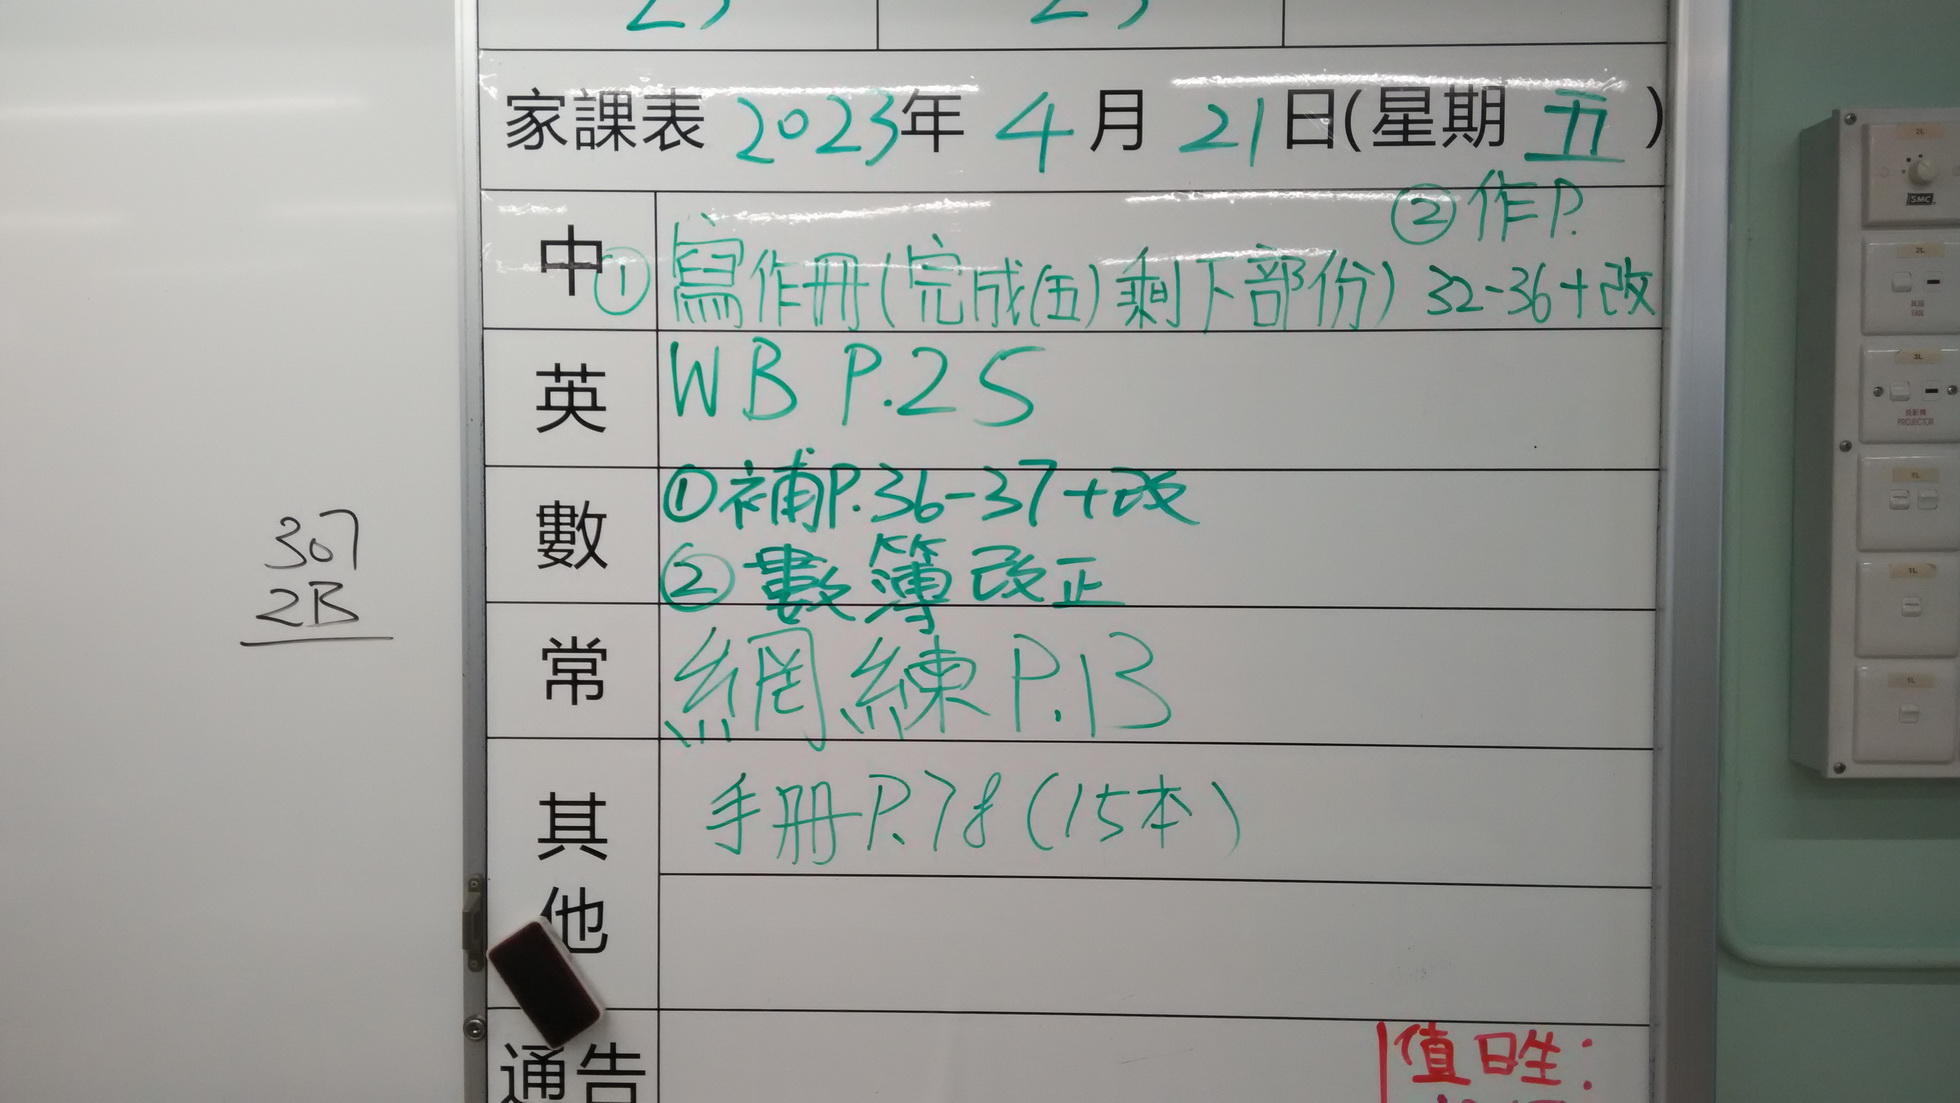 家課表 2023年 4月 21日(星期 五)
中 ① 寫作冊(完成(五)剩下部份) ② 作P.
32-36+改
英 WB P.25
數 ①補P.36-37+改
② 數簿改正
常 網練P.13
其他 手冊P.78(15本)
通告
值日生:
307
2B
2L
SMC
2L
3L
PROJECTOR
1L
1L